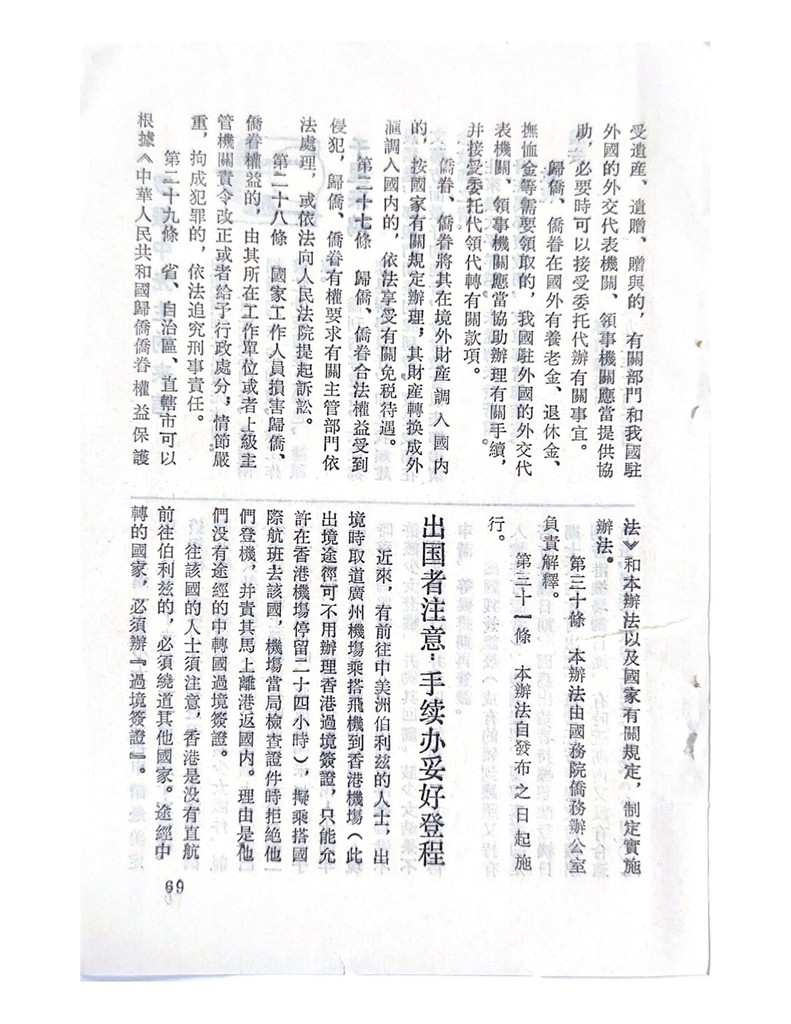 受遺産、遺贈、贈與的，有關部門和我國駐
外國的外交代表機關、領事機關應當提供協
助，必要時可以接受委托代辦有關事宜。
歸僑、僑眷在國外有養老金、退休金、
撫恤金等需要領取的，我國駐外國的外交代
表機關、領事機關應當協助辦理有關手續，
并接受委托代領代轉有關款項。
僑眷、僑眷將其在境外財産調入國内
的，按國家有關規定辦理；其財産轉換成外
滙調入國内的，依法享受有關免税待遇。
第二十七條　歸僑、僑眷合法權益受到
侵犯，歸僑、僑眷有權要求有關主管部門依
法處理，或依法向人民法院提起訴訟。
第二十八條　國家工作人員損害歸僑、
僑眷權益的，由其所在工作單位或者上級主
管機關責令改正或者給予行政處分；情節嚴
重，拘成犯罪的，依法追究刑事責任。
第二十九條　省、自治區、直轄市可以
根據《中華人民共和國歸僑僑眷權益保護
法》和本辦法以及國家有關規定，制定實施
辦法。
第三十條　本辦法由國務院僑務辦公室
負責解釋。
第三十一條　本辦法自發布之日起施
行。
出国者注意：手续办妥好登程
近來，有前往中美洲伯利兹的人士，出
境時取道廣州機塲乘搭飛機到香港機塲（此
出境途徑可不用辦理香港過境簽證，只能允
許在香港機塲停留二十四小時），擬乘搭國
際航班去該國，機塲當局檢查證件時拒絶他
們登機，并責其馬上離港返國内。理由是他
們没有途經的中轉國過境簽證。
往該國的人士須注意，香港是没有直航
前往伯利兹的，必須繞道其他國家。途經中
轉的國家，必須辦『過境簽證』。
69